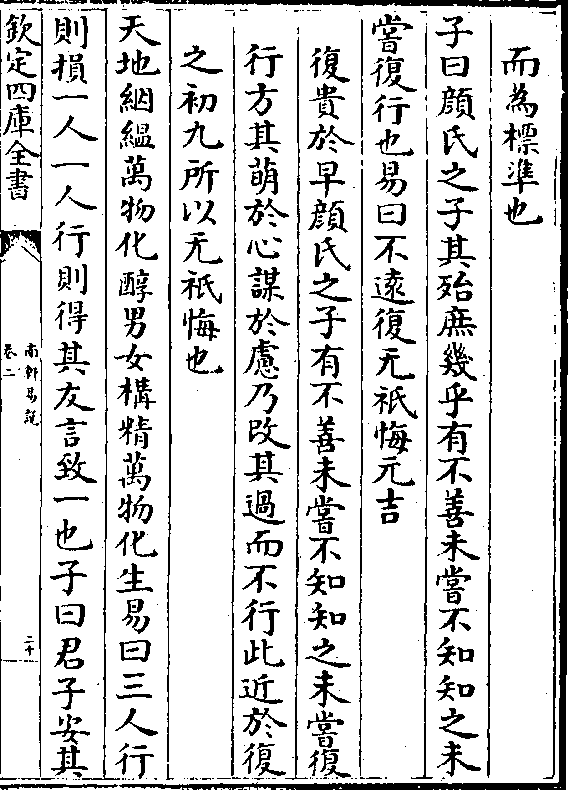 而為標準也
子曰顔氏之子其殆庶幾乎有不善未嘗不知知之未
嘗復行也易曰不逺復无祇悔元吉
復貴於早顔氏之子有不善未嘗不知知之未嘗復
行方其萌於心謀於慮乃改其過而不行此近於復
之初九所以无祇悔也
天地絪緼萬物化醇男女構精萬物化生易曰三人行
則損一人一人行則得其友言致一也子曰君子安其
欽定四庫全書
南軒易說
卷二
二十